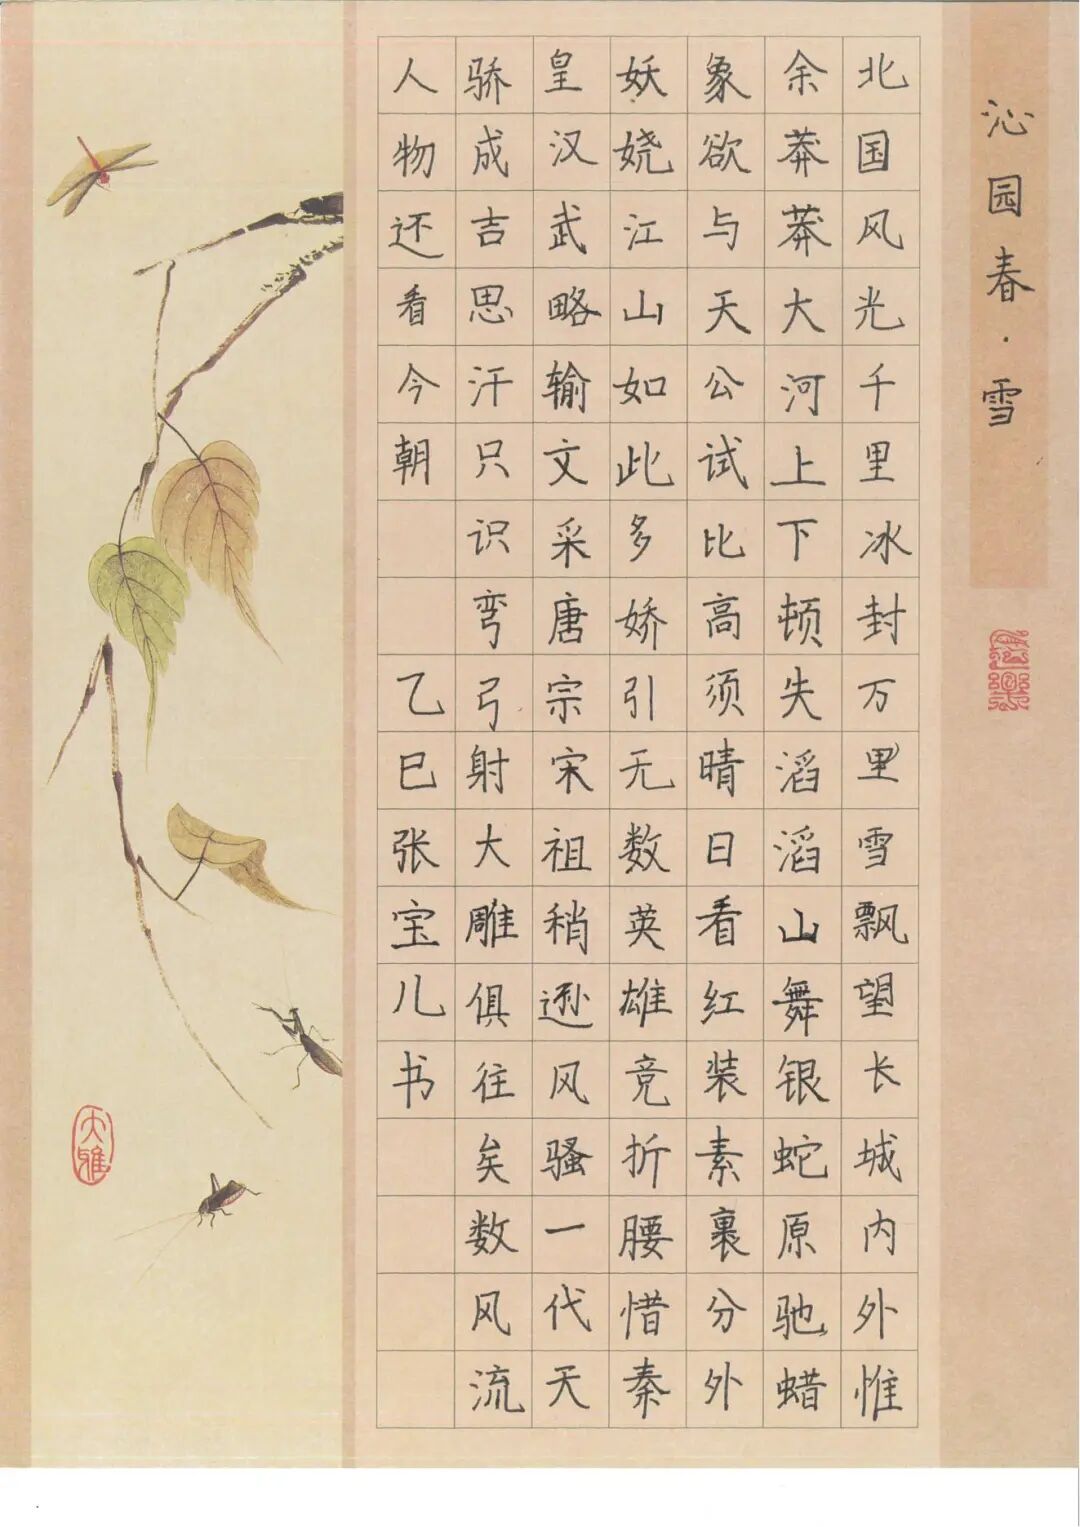 沁园春·雪
北国风光千里冰封万里雪飘望长城内外惟
余莽莽大河上下顿失滔滔山舞银蛇原驰蜡
象欲与天公试比高须晴日看红装素裹分外
妖娆江山如此多娇引无数英雄竞折腰惜秦
皇汉武略输文采唐宗宋祖稍逊风骚一代天
骄成吉思汗只识弯弓射大雕俱往矣数风流
人物还看今朝
乙巳张宝儿书
大雅